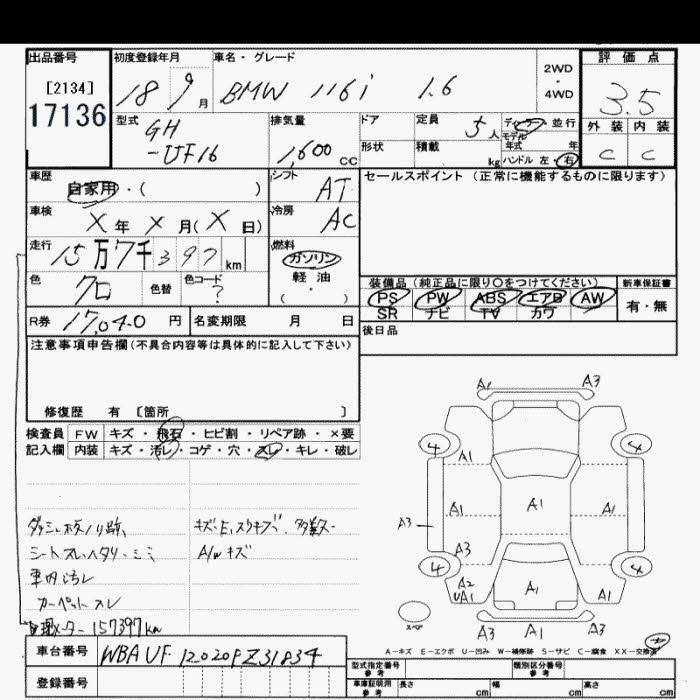 出品番号 初度登録年月 車名・グレード 2WD・4WD 評価点
[2134] 17136
18 9月 BMW 116i 1.6 3.5
型式 GH-UF16 排気量 1,600 CC ドア 定員 5人 ディーラー 並行 外装 内装
形状 積載 kg モデル年式 年 ハンドル 左・右 C C
車歴 自家用・( ) シフト AT セールスポイント(正常に機能するものに限ります)
車検 X年X月(X日) 冷房 AC
走行 15万7千397 km 燃料 ガソリン 軽油・( )
色 クロ 色替 色コード ?
装備品(純正品に限り○をつけてください) 新車保証書
PS PW ABS エアB AW 有・無
SR ナビ TV カワ
R券 17,040円 名変期限 月 日 後日品
注意事項申告欄(不具合内容等は具体的に記入して下さい)
修復歴 有 [箇所 ]
検査員 FW キズ・飛石・ヒビ割・リペア跡・×要
記入欄 内装 キズ・汚レ・コゲ・穴・スレ・キレ・破レ
A1 A3
4 4
A1 A1
A1 A1 A1
A3 A3
4 4
A2 UA1 A1 A1
スペア A3 A3 A1
キズ・E、スリキズ、多数
シートスレ・ヘタリ・シミ A/Wキズ
車内汚レ
カーペットスレ
157397km
A-キズ E-エクボ U-凹み W-補修跡 S-サビ C-腐食 XX-交換済
車台番号 WBAUF12020PZ31834
型式指定番号 参考 類別区分番号 参考
登録番号 車庫証明用 参考 長さ cm 幅 cm 高さ cm